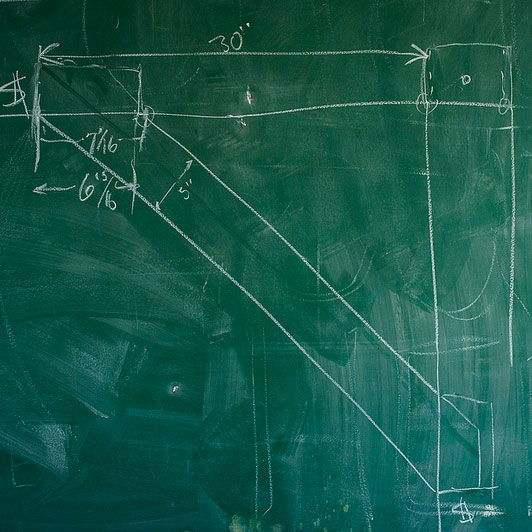 30"
7 1/16
6 15/16
5"